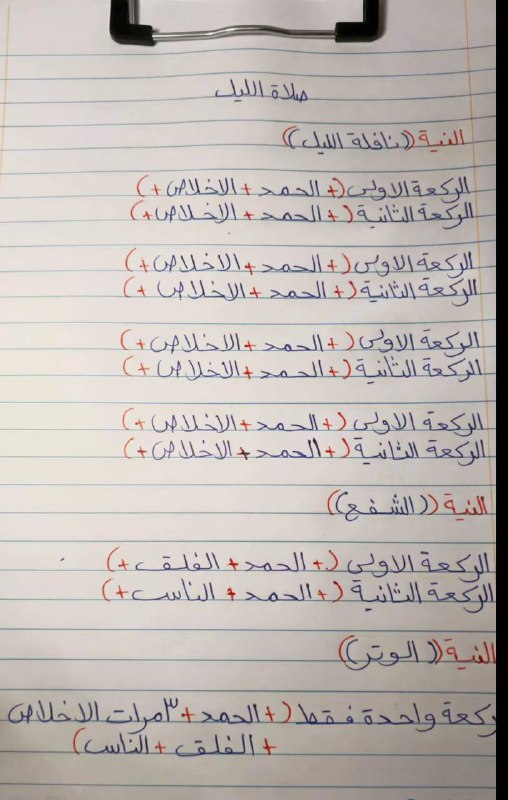 صلاة الليل
النية ((نافلة الليل))
الركعة الاولى (+ الحمد + الاخلاص +)
الركعة الثانية (+ الحمد + الاخلاص +)
الركعة الاولى (+ الحمد + الاخلاص +)
الركعة الثانية (+ الحمد + الاخلاص +)
الركعة الاولى (+ الحمد + الاخلاص +)
الركعة الثانية (+ الحمد + الاخلاص +)
الركعة الاولى (+ الحمد + الاخلاص +)
الركعة الثانية (+ الحمد + الاخلاص +)
النية ((الشفع))
الركعة الاولى (+ الحمد + الفلق +)
الركعة الثانية (+ الحمد + الناس +)
النية ((الوتر))
ركعة واحدة فقط (+ الحمد + ٣ مرات الاخلاص
+ الفلق + الناس)